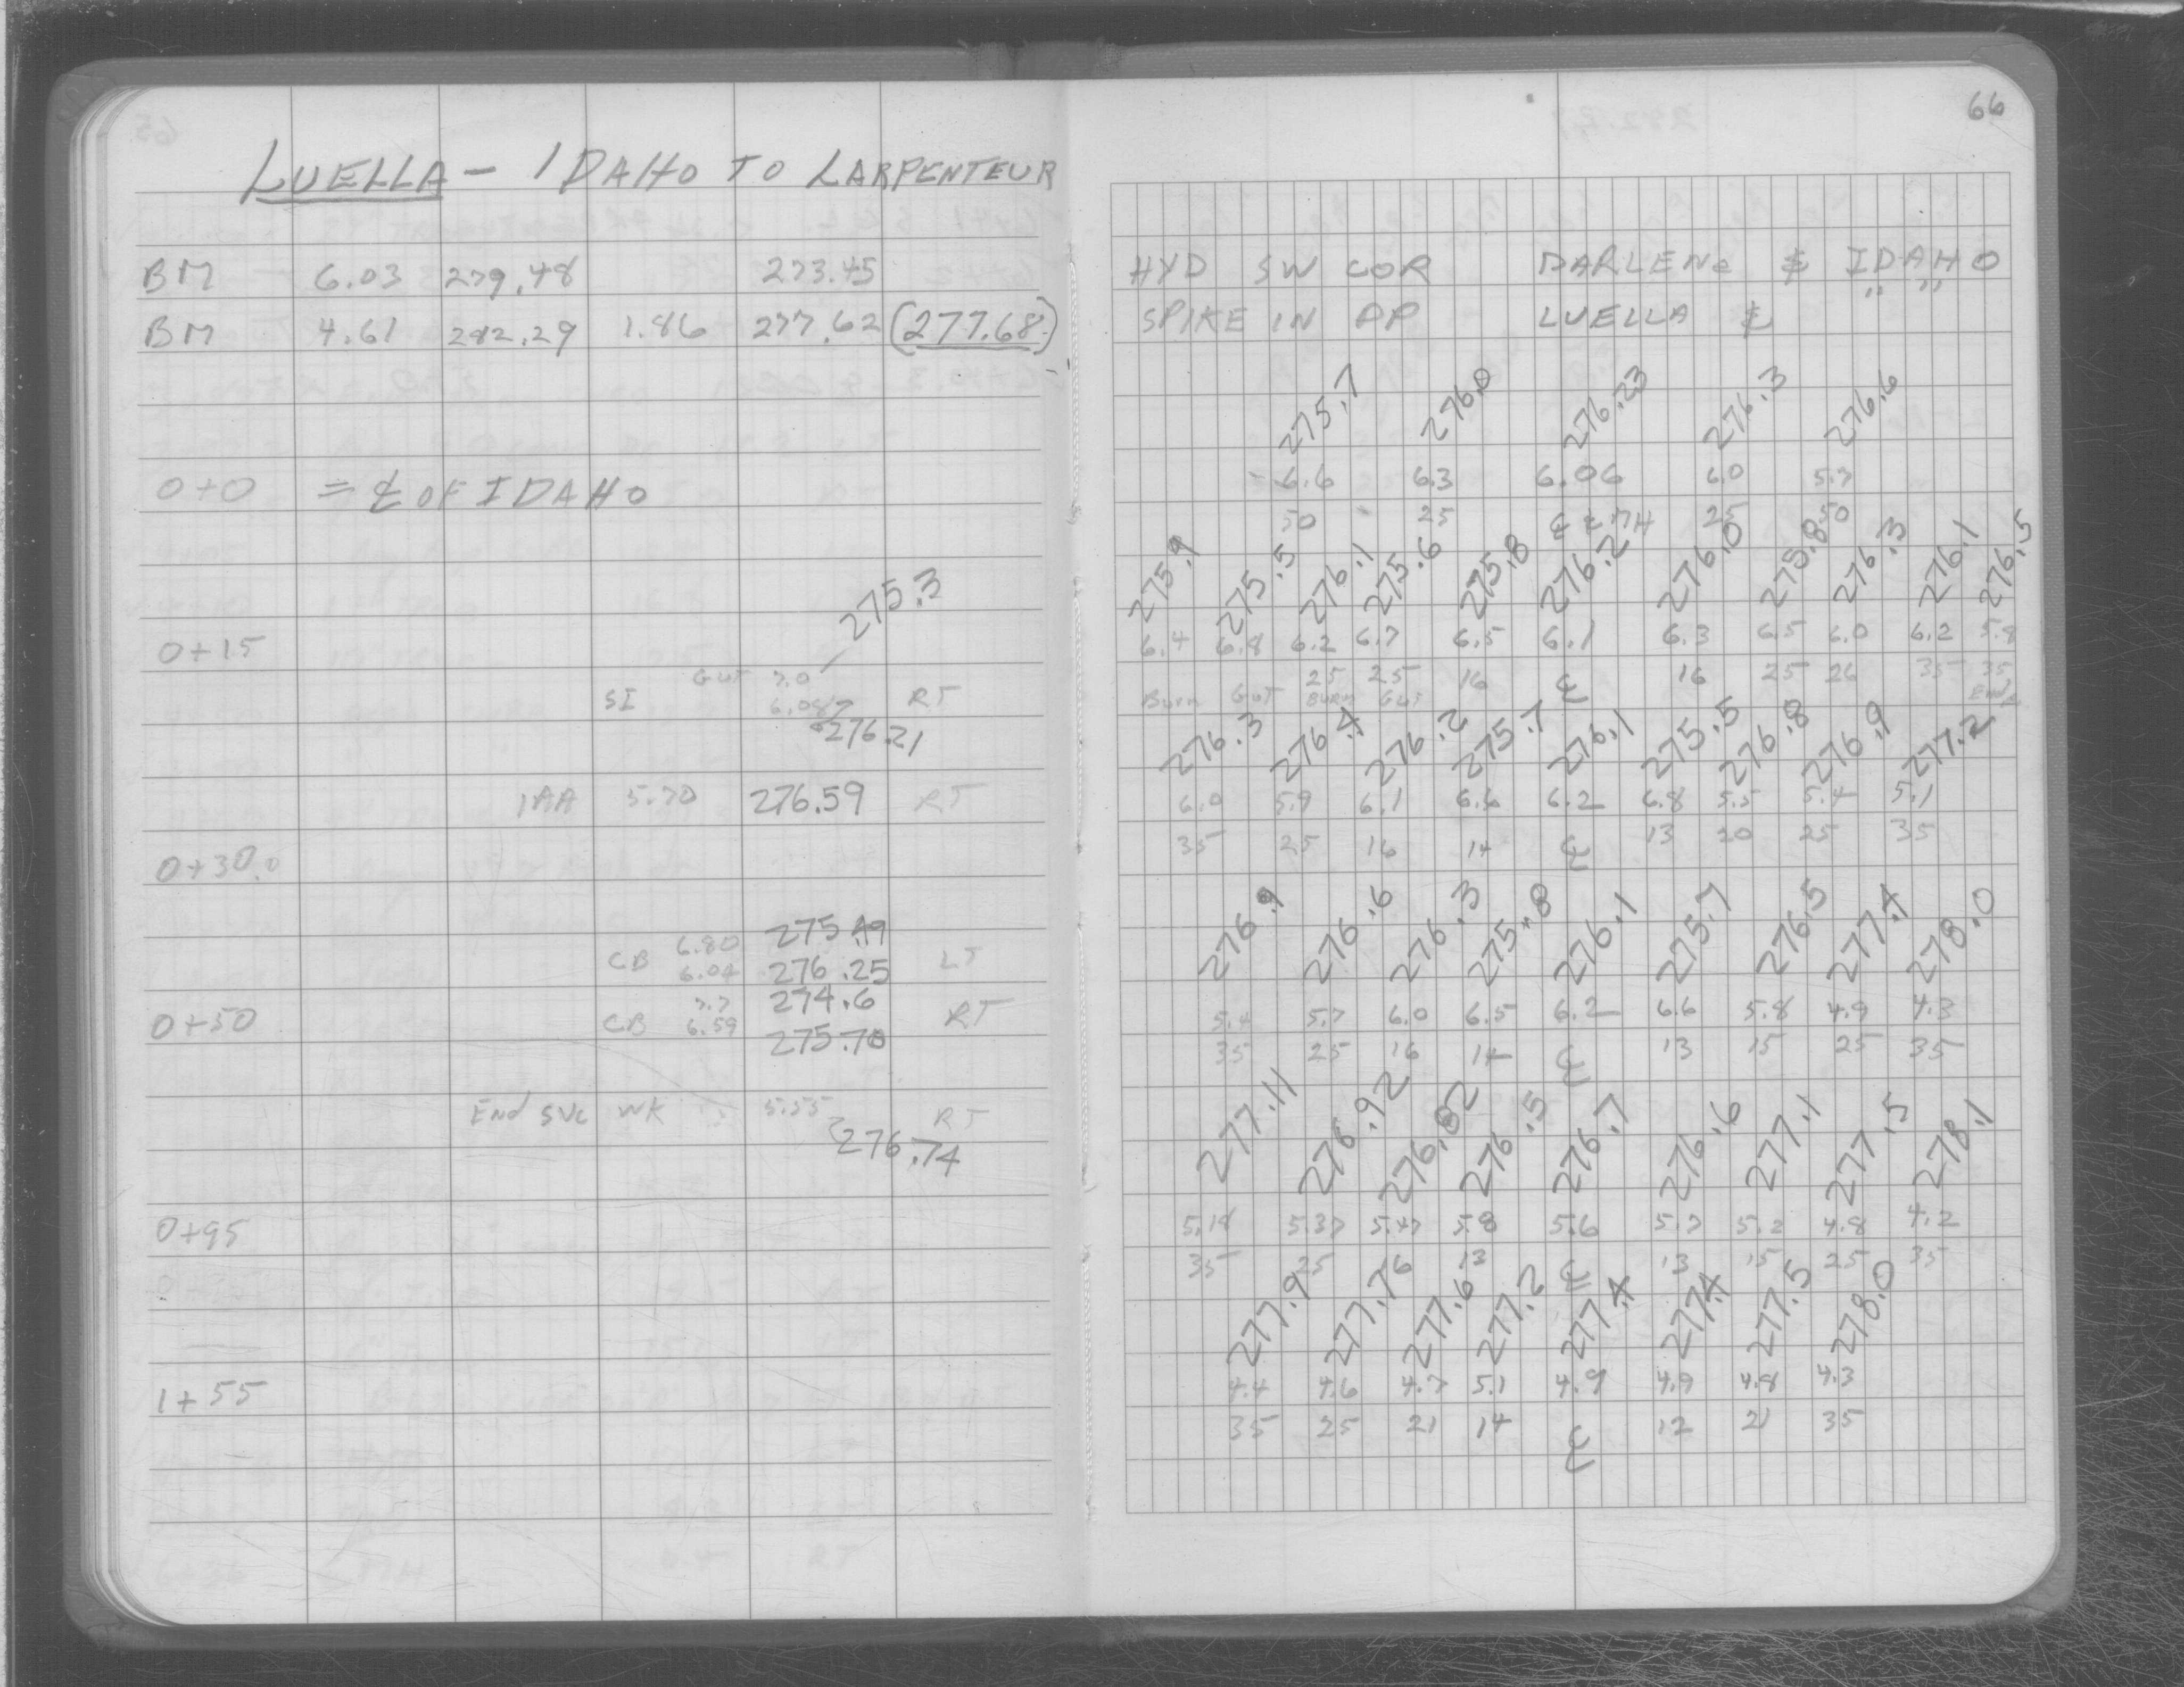 LUELLA - IDAHO TO LARPENTEUR
BM 6.03 279.48 273.45
BM 4.61 282.29 1.86 277.62 (277.68)
0+0 = ₵ OF IDAHO
275.3
0+15
GUT 7.0
SI 6.08 RT
276.21
1AA 5.70 276.59 RT
0+30.0
6.80 275.49
CB 6.04 276.25 LT
7.7 274.6
0+50 CB 6.59 275.70 RT
End SVC WK 5.55 RT
276.74
0+95
1+55
66
HYD SW COR DARLENE & IDAHO
SPIKE IN PP LUELLA & " "
275.7 276.0 276.23 276.3 276.6
6.6 6.3 6.06 6.0 5.7
50 25 ₵ 25 50
275.9 275.5 276.1 275.6 275.8 276.2 276.0 275.8 276.3 276.1 276.5
6.4 6.8 6.2 6.7 6.5 6.1 6.3 6.5 6.0 6.2 5.8
25 25 16 ₵ 16 25 26 35 35
Burn GUT BURN GUT
276.3 276.4 276.2 275.7 276.1 275.5 276.8 276.9 277.2
6.0 5.9 6.1 6.6 6.2 6.8 5.5 5.4 5.1
35 25 16 14 ₵ 13 20 25 35
276.9 276.6 276.3 275.8 276.1 275.7 276.5 277.4 278.0
5.4 5.7 6.0 6.5 6.2 6.6 5.8 4.9 4.3
35 25 16 14 ₵ 13 15 25 35
277.11 276.92 276.82 276.5 276.7 276.6 277.1 277.5 278.1
5.18 5.37 5.47 5.8 5.6 5.7 5.2 4.8 4.2
35 25 16 13 ₵ 13 15 25 35
277.9 277.7 277.6 277.2 277.4 277.4 277.5 278.0
4.4 4.6 4.7 5.1 4.9 4.9 4.8 4.3
35 25 21 14 ₵ 12 21 35